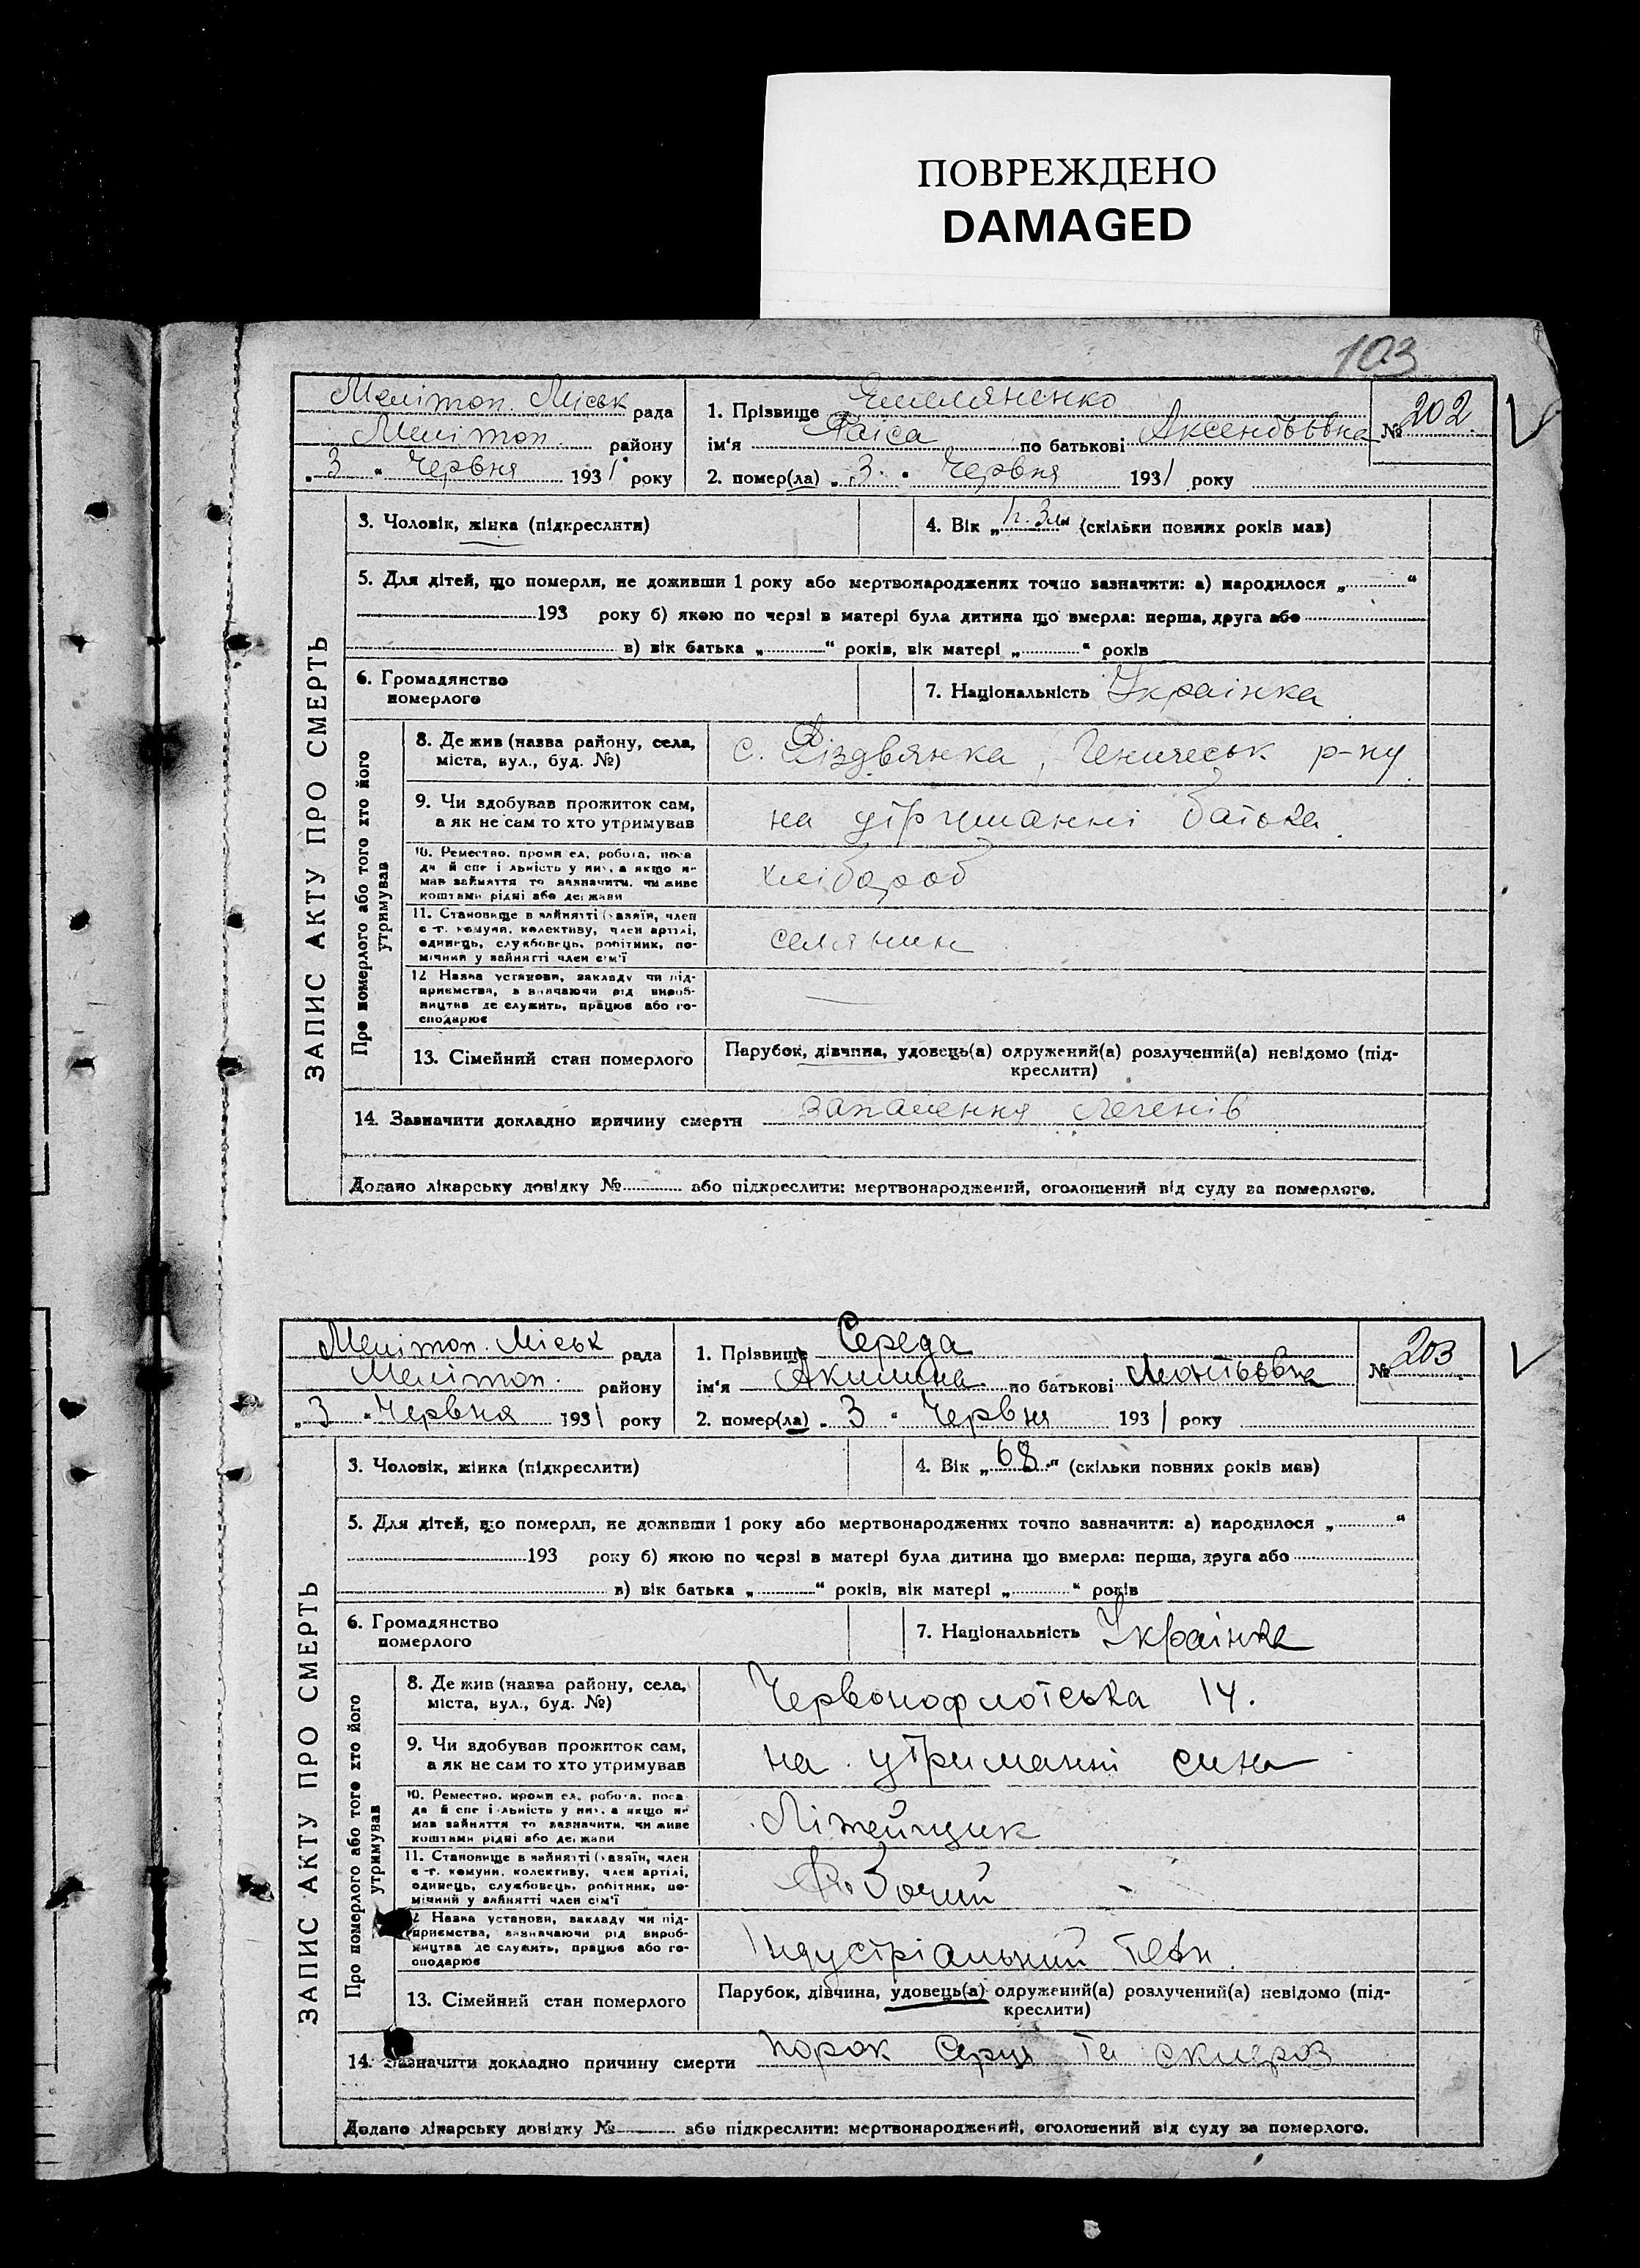 ПОВРЕЖДЕНО
DAMAGED
103
Мелітоп. Міськ рада
Мелітоп. району
„3“ Червня 1931 року
1. Прізвище Емельяненко
ім'я Раіса по батькові Аксентьевна
№ 202
2. помер(ла) „3“ Червня 1931 року
ЗАПИС АКТУ ПРО СМЕРТЬ
3. Чоловік, жінка (підкреслити)
4. Вік „1г. 3м“ (скільки повних років мав)
5. Для дітей, що померли, не доживши 1 року або мертвонароджених точно зазначити: а) народилося „ “
193 року б) якою по черзі в матері була дитина що вмерла: перша, друга або
в) вік батька „ “ років, вік матері „ “ років
6. Громадянство
померлого
7. Національність Українка
Про померлого або того хто його
утримував
8. Де жив (назва району, села,
міста, вул., буд. №)
с. Різдвянка, Геническ р-ну
9. Чи здобував прожиток сам,
а як не сам то хто утримував
на утриманні батька.
10. Ремество, промисел, робота, поса
да й спеціальність у них, а якщо не
мав зайняття то зазначити, чи живе
коштами рідні або держави
хлібороб
11. Становище в зайнятті (хазяїн, член
с-г. комуни, колективу, член артілі,
одинець, службовець, робітник, по-
мічний у зайнятті член сім'ї
селянин
12 Назва установи, закладу чи під-
приємства, зазначаючи рід вироб-
ництва де служить, працює або го-
сподарює
13. Сімейний стан померлого
Парубок, дівчина, удовець(а) одружений(а) розлучений(а) невідомо (під-
креслити)
14. Зазначити докладно причину смерти запалення легенів
Додано лікарську довідку № або підкреслити: мертвонароджений, оголошений від суду за померлого.
Мелітоп. Міськ рада
Мелітоп. району
„3“ Червня 1931 року
1. Прізвище Середа
ім'я Акилина по батькові Леонтьевна
№ 203
2. помер(ла) „3“ Червня 1931 року
ЗАПИС АКТУ ПРО СМЕРТЬ
3. Чоловік, жінка (підкреслити)
4. Вік „68“ (скільки повних років мав)
5. Для дітей, що померли, не доживши 1 року або мертвонароджених точно зазначити: а) народилося „ “
193 року б) якою по черзі в матері була дитина що вмерла: перша, друга або
в) вік батька „ “ років, вік матері „ “ років
6. Громадянство
померлого
7. Національність Українка
Про померлого або того хто його
утримував
8. Де жив (назва району, села,
міста, вул., буд. №)
Червонофлотська 14.
9. Чи здобував прожиток сам,
а як не сам то хто утримував
на утриманні сина
10. Ремество, промисел, робота, поса
да й спеціальність у них, а якщо не
мав зайняття то зазначити, чи живе
коштами рідні або держави
Літейщик
11. Становище в зайнятті (хазяїн, член
с-г. комуни, колективу, член артілі,
одинець, службовець, робітник, по-
мічний у зайнятті член сім'ї
Робочий
12 Назва установи, закладу чи під-
приємства, зазначаючи рід вироб-
ництва де служить, працює або го-
сподарює
Індустріальний
13. Сімейний стан померлого
Парубок, дівчина, удовець(а) одружений(а) розлучений(а) невідомо (під-
креслити)
14. Зазначити докладно причину смерти порок серця та склероз
Додано лікарську довідку № або підкреслити: мертвонароджений, оголошений від суду за померлого.